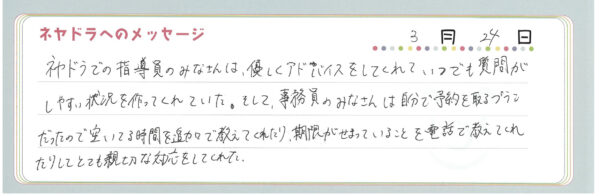 ネヤドラへのメッセージ
3 月 24 日
ネヤドラでの指導員のみなさんは、優しくアドバイスをしてくれていつでも質問が
しやすい状況を作ってくれていた。そして、事務員のみなさんは自分で予約を取るプラン
だったので空いてる時間を追加々で教えてくれたり、期限がせまっていることを電話で教えてくれ
たりしてとても親切な対応をしてくれた。